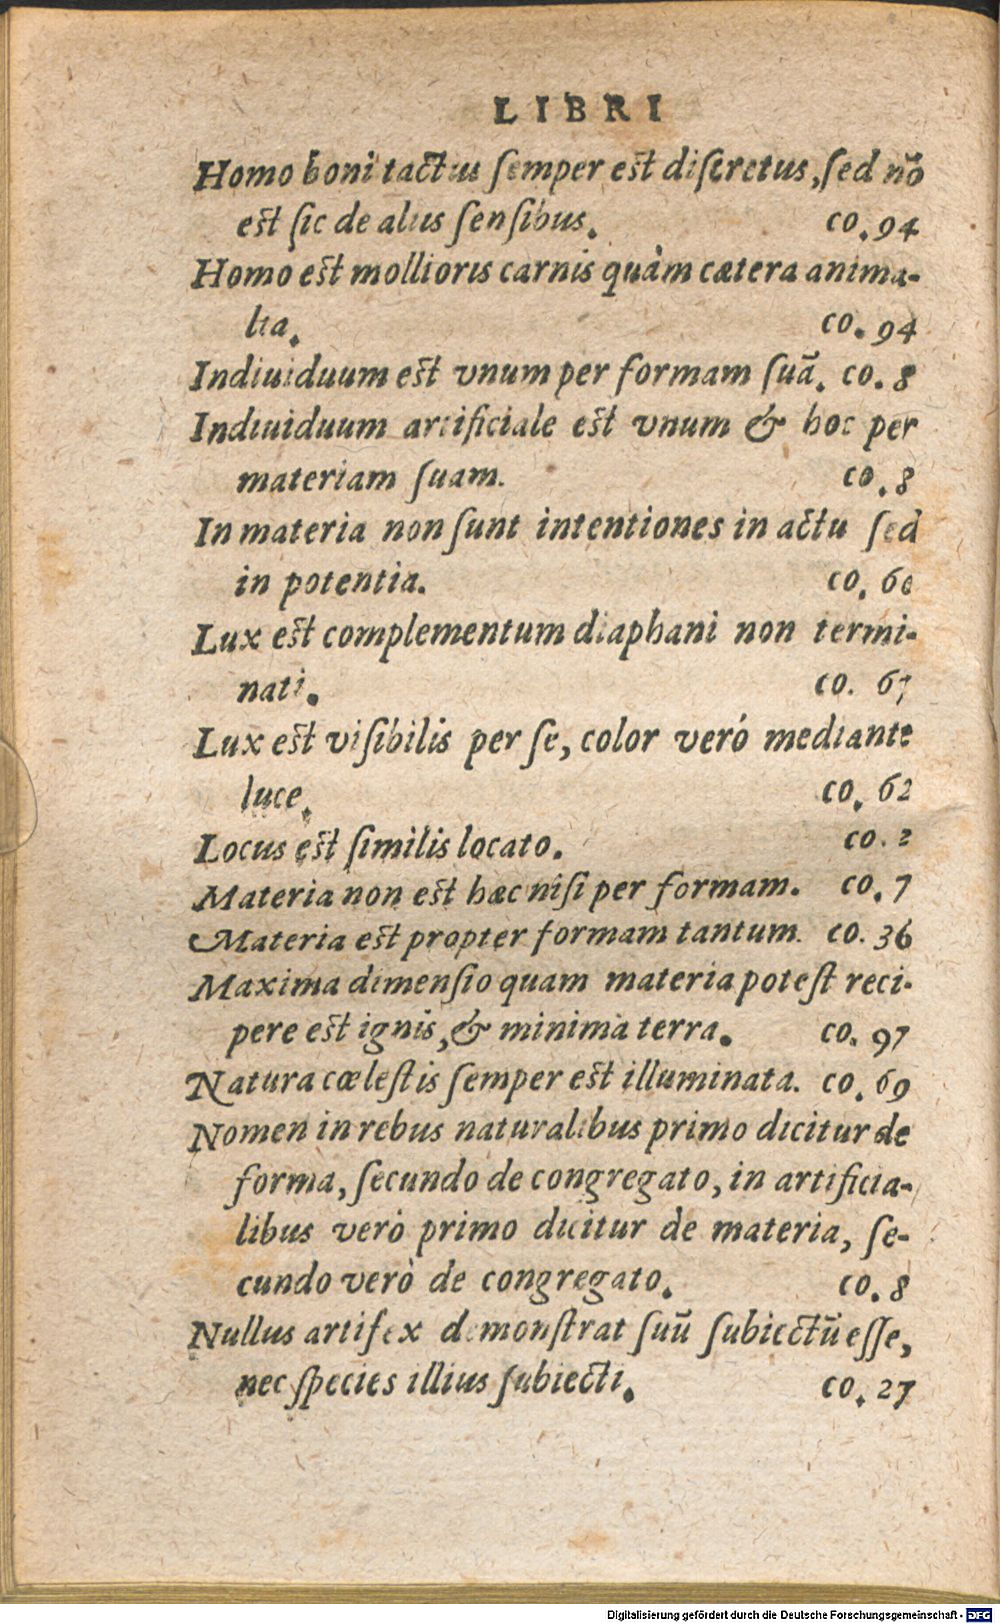 LIBRI
Homo boni tactus ſemper est diſcretus, ſed nō
est ſic de aliis ſenſibus. co. 94
Homo est mollioris carnis quàm cætera anima-
lia. co. 94
Indiuiduum est vnum per formam ſuā. co. 8
Indiuiduum artificiale est vnum & hoc per
materiam ſuam. co. 8
In materia non ſunt intentiones in actu ſed
in potentia. co. 60
Lux est complementum diaphani non termi-
nati. co. 67
Lux est viſibilis per ſe, color veró mediante
luce. co. 62
Locus est ſimilis locato. co. 2
Materia non est hæc niſi per formam. co. 7
Materia est propter formam tantum. co. 36
Maxima dimenſio quam materia poteſt reci-
pere est ignis, & minima terra. co. 97
Natura cœleſtis ſemper est illuminata. co. 69
Nomen in rebus naturalibus primo dicitur de
forma, ſecundo de congregato, in artificia-
libus verò primo dicitur de materia, ſe-
cundo verò de congregato. co. 8
Nullus artifex demonſtrat ſuū ſubiectū eſſe,
nec ſpecies illius ſubiecti. co. 27
Digitalisierung gefördert durch die Deutsche Forschungsgemeinschaft - DFG